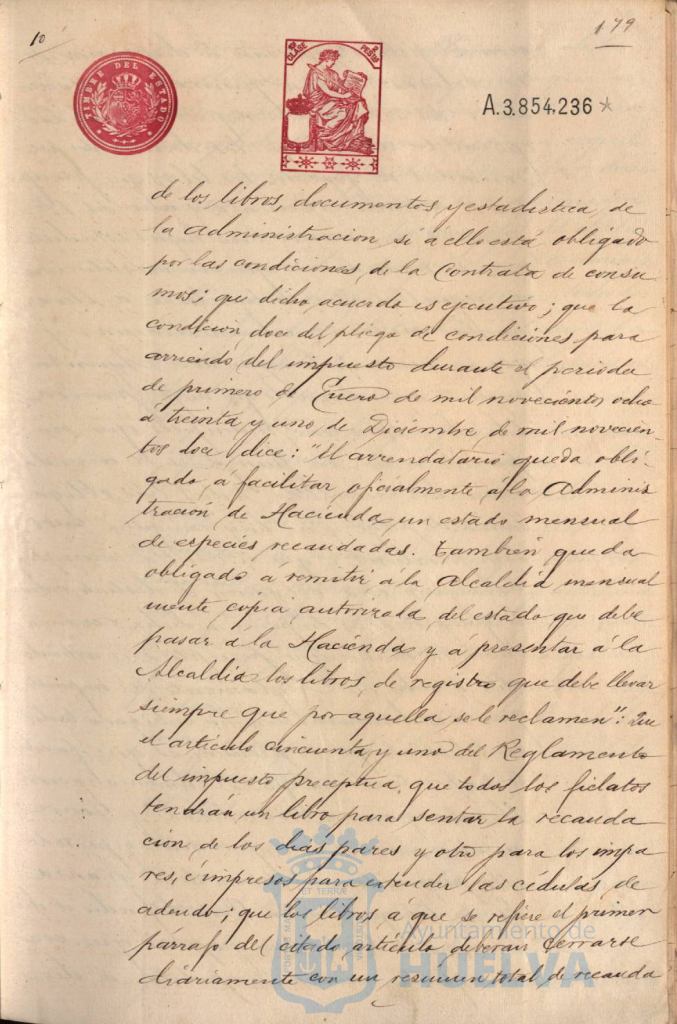 10
179
TIMBRE DEL ESTADO
10 CLASE 2 PESTAS
A.3.854.236
de los libros, documentos y estadistica de
la administracion, si a ello está obligado
por las condiciones de la Contrata de consu
mos; que dicho acuerdo es ejecutivo; que la
condición doce del pliego de condiciones para
arriendo del impuesto durante el periodo
de primero de Enero de mil novecientos ocho
á treinta y uno de Diciembre de mil novecien-
tos doce dice: "El arrendatario queda obli-
gado á facilitar oficialmente á la Adminis
tración de Hacienda un estado mensual
de especies recaudadas. Tambien queda
obligado á remitir á la Alcaldia mensual
mente copia autorizada del estado que debe
pasar a la Hacienda y á presentar á la
Alcaldia los libros de registro que debe llevar
siempre que por aquella se le reclamen": Que
el articulo cincuenta y uno del Reglamento
del impuesto preceptua que todos los fielatos
tendrán un libro para sentar la recauda
cion de los dias pares y otro para los impa
res, é impresos para extender las cédulas de
adeudo; que los libros á que se refiere el primer
párrafo del citado articulo deberan cerrarse
diariamente con un resumen total de recauda
Ayuntamiento de
HUELVA